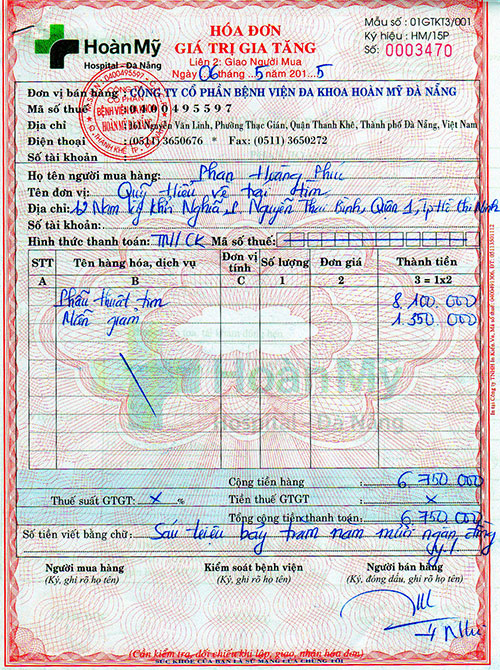 HÓA ĐƠN
GIÁ TRỊ GIA TĂNG
Liên 2: Giao Người Mua
Ngày 06 tháng 5 năm 2015
Mẫu số : 01GTKT3/001
Ký hiệu : HM/15P
Số: 0003470
Hoàn Mỹ
Hospital - Đà Nẵng
Đơn vị bán hàng : CÔNG TY CỔ PHẦN BỆNH VIỆN ĐA KHOA HOÀN MỸ ĐÀ NẴNG
Mã số thuế : 0400495597
Địa chỉ : 161 Nguyễn Văn Linh, Phường Thạc Gián, Quận Thanh Khê, Thành phố Đà Nẵng, Việt Nam
Điện thoại : (0511) 3650676 * Fax: (0511) 3650272
Số tài khoản :
Họ tên người mua hàng: Phan Hoàng Phúc
Tên đơn vị: Quỹ Hiểu về trái tim
Địa chỉ: 62 Nam kỳ khởi Nghĩa, Nguyễn Thái Bình, Quận 1, Tp Hồ Chí Minh
Số tài khoản:
Hình thức thanh toán: TM/CK Mã số thuế:
STT Tên hàng hóa, dịch vụ Đơn vị tính Số lượng Đơn giá Thành tiền
A B C 1 2 3 = 1x2
Phẫu thuật tim 8.100.000
Miễn giảm 1.350.000
Hoàn Mỹ
Hospital - Đà Nẵng
Cộng tiền hàng : 6 750 000
Thuế suất GTGT: x % Tiền thuế GTGT : x
Tổng cộng tiền thanh toán: 6 750 000
Số tiền viết bằng chữ: Sáu triệu bảy trăm năm mươi ngàn đồng
Người mua hàng Kiểm soát bệnh viện Người bán hàng
(Ký, ghi rõ họ tên) (Ký, ghi rõ họ tên) (Ký, đóng dấu, ghi rõ họ tên)
(Cần kiểm tra, đối chiếu khi lập, giao, nhận hóa đơn)
SỨC KHỎE CỦA BẠN LÀ SỨ MẠNG CỦA CHÚNG TÔI